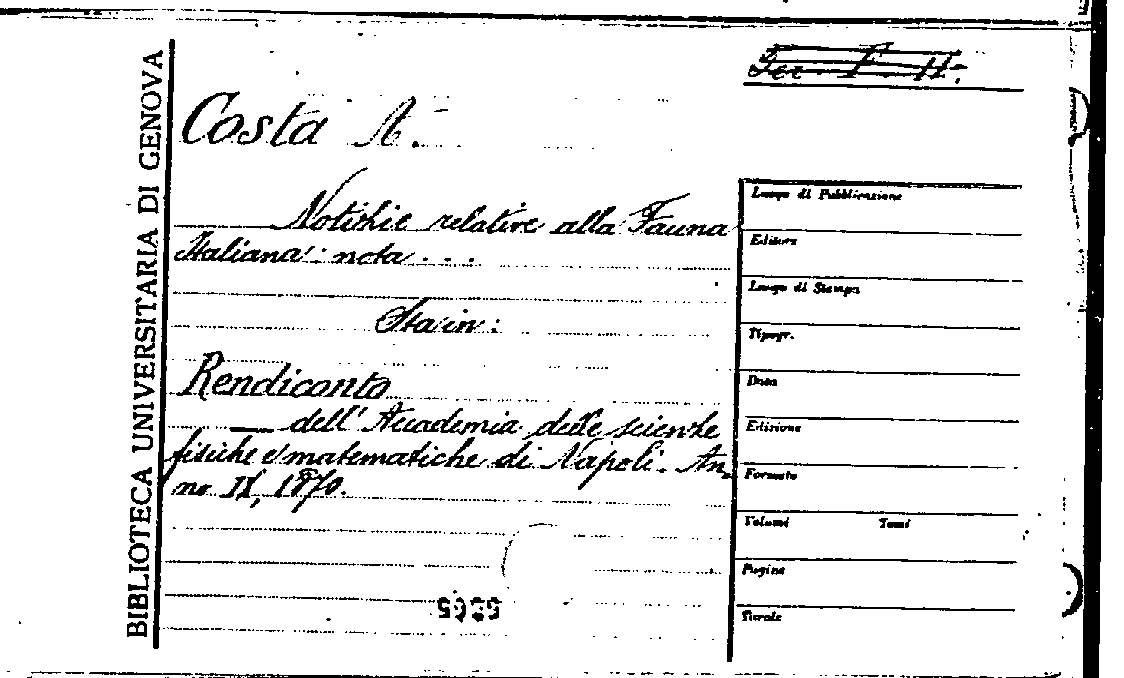 BIBLIOTECA UNIVERSITARIA DI GENOVA
Costa A.
Notizie relative alla Fauna
Italiana: nota . . .
Sta in:
Rendiconto
dell' Accademia delle scienze
fisiche e matematiche di Napoli. An-
no IX, 1870.
Luogo di Pubblicazione
Editore
Luogo di Stampa
Tipogr.
Data
Edizione
Formato
Volumi Tomi
Pagine